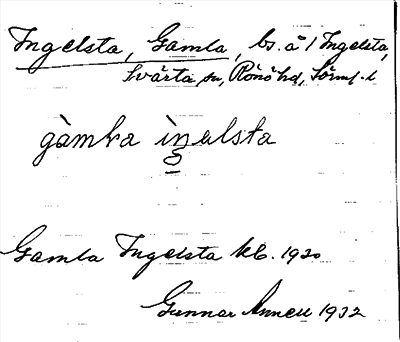 Ingelsta, Gamla, bs. å 1 Ingelsta,
Svärta sn, Rönö hd, Sörml. l
gàmka ìngelsta
Gamla Ingelsta kb. 1920
Gunnar Anneu 1932